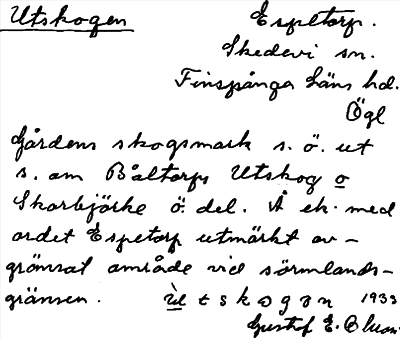 Utskogen
Espetorp.
Skedevi sn.
Finspånga läns hd.
Ögl
Gårdens skogsmark s. ö. ut
s. om Båltorps Utskog o
Skarbjörke ö. del. Å ek. med
ordet Espetorp utmärkt av-
gränsat område vid sörmlands-
gränsen. ùtskogən 1933
Gustaf E.